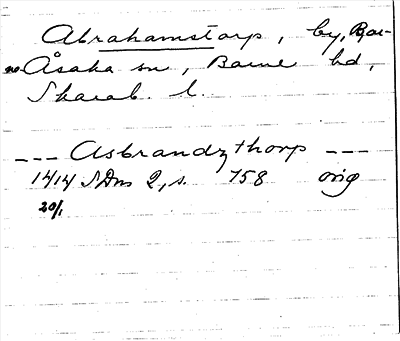 Abrahamstorp, by, Bar-
ne Åsaka sn, Barne hd,
Skarab. l.
--- Asbrandzthorp ---
1414 SDns 2, s. 758 orig
20/1